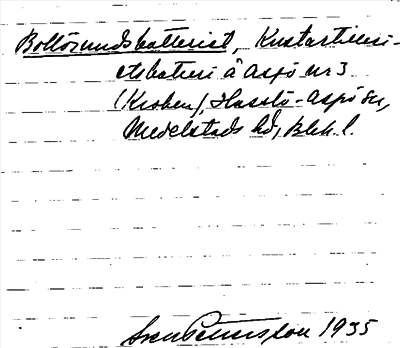 Boltörundsbatteriet, Kustartilleri-
etsbatteri å Aspö nr 3
(Kroken), Hasslö-Aspö sn,
Medelstads hd, Blek. l.
Sven Petersson 1935